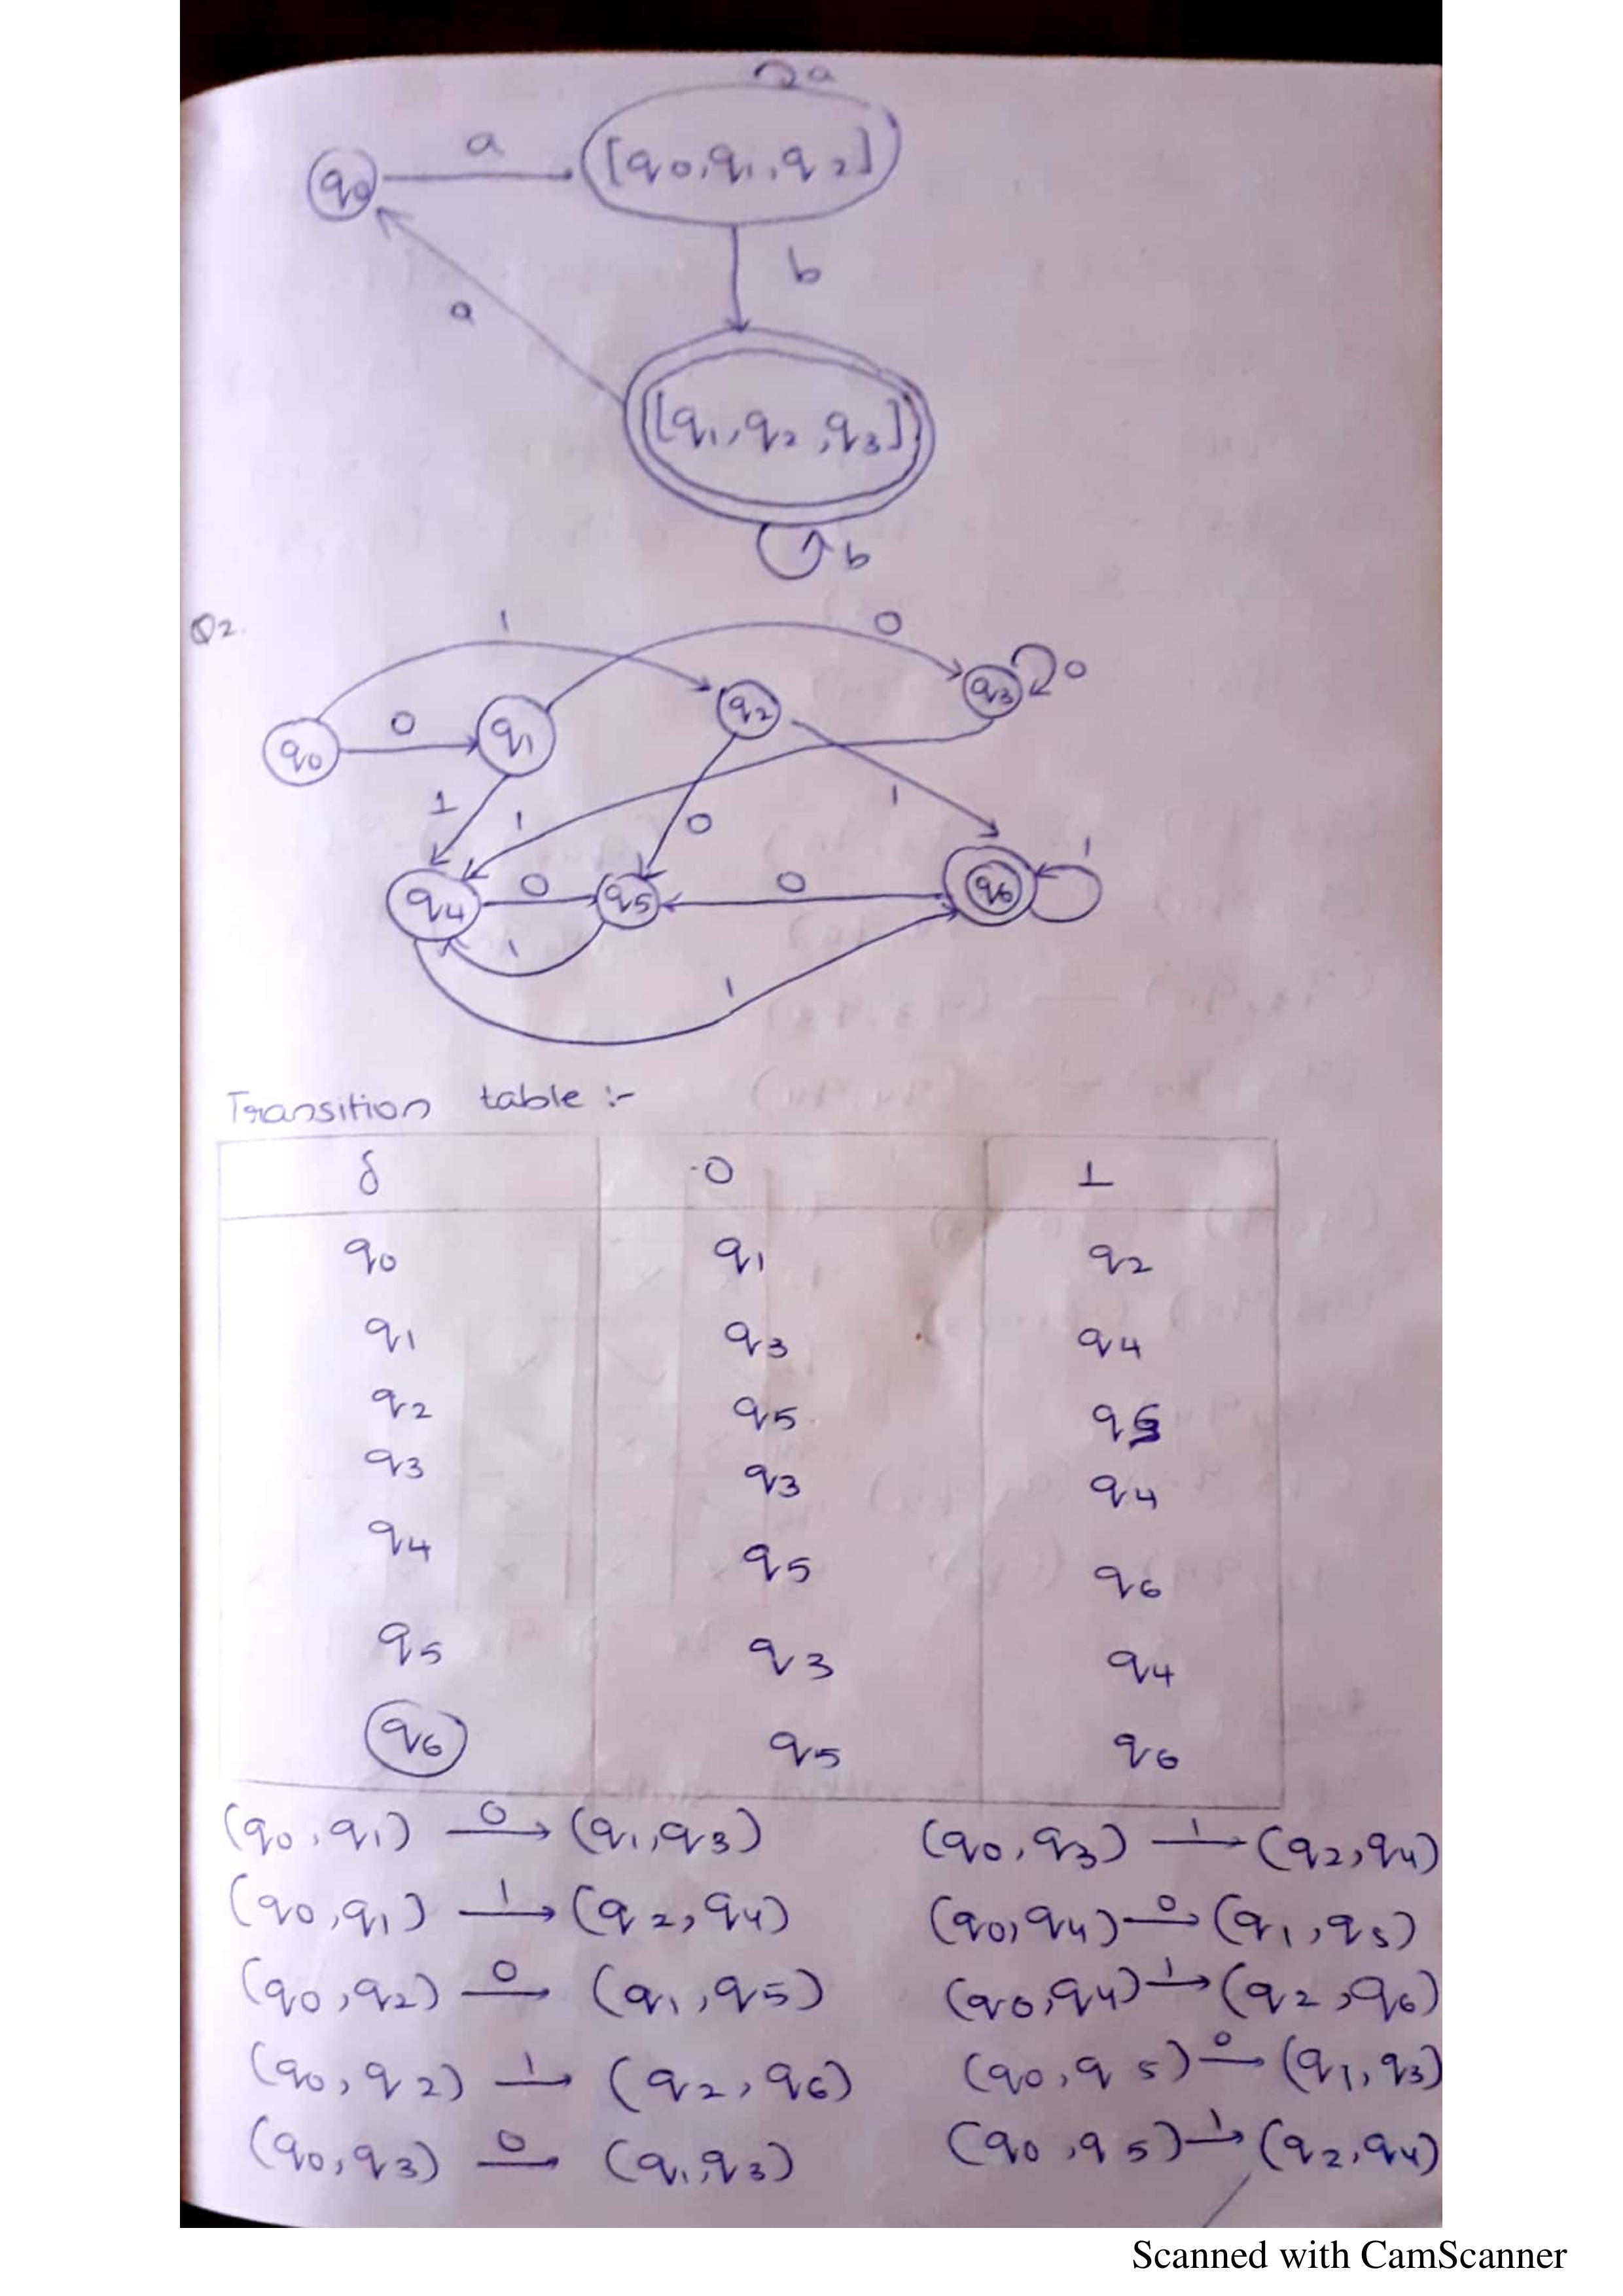 a
q0 a [q0,q1,q2]
b
a
[q1,q2,q3]
b
Q2.
1 0
q0 0 q1 q2 q3 0
1 1 0 1 1
q4 0 q5 0 q6
1
1
Transition table :-
δ 0 1
q0 q1 q2
q1 q3 q4
q2 q5
q3 q3 q4
q4 q5 q6
q5 q3 q4
q6 q5 q6
(q0,q1) 0→ (q1,q3) (q0,q3) 1→ (q2,q4)
(q0,q1) 1→ (q2,q4) (q0,q4) 0→ (q1,q5)
(q0,q2) 0→ (q1,q5) (q0,q4) 1→ (q2,q6)
(q0,q2) 1→ (q2,q6) (q0,q5) 0→ (q1,q3)
(q0,q3) 0→ (q1,q3) (q0,q5) 1→ (q2,q4)
Scanned with CamScanner